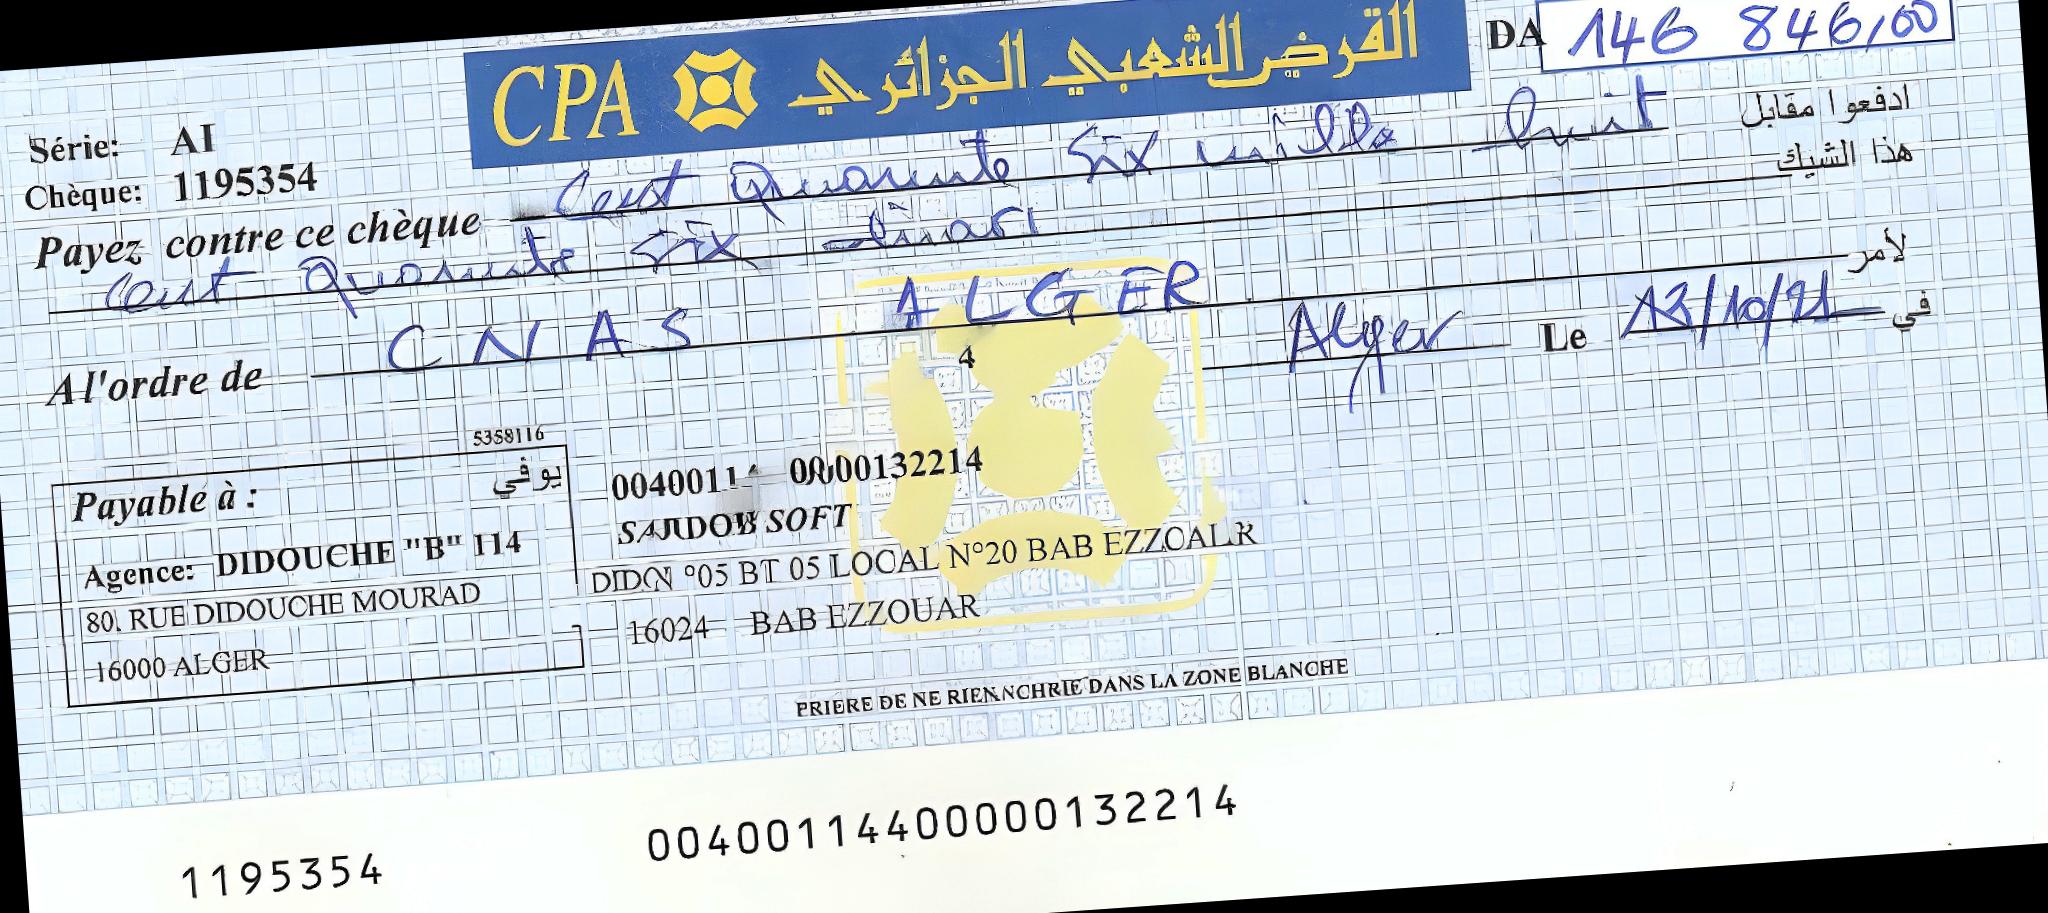 CPA القرض الشعبي الجزائري
DA 146 846,00
Série: AI
Chèque: 1195354
ادفعوا مقابل
هذا الشيك
Payez contre ce chèque Cent Quarante Six mille huit
Cent Quarante Six dinars
لأمر
A l'ordre de CNAS ALGER
Alger Le 13/10/21 في
4
5358116
Payable à : يوفي
Agence: DIDOUCHE "B" 114
80. RUE DIDOUCHE MOURAD
16000 ALGER
00132214
SOFT
°05 BT 05 LOCAL N°20 BAB
16024 BAB EZZOUAR
PRIERE DE NE DANS LA ZONE BLANCHE
1195354
00400114400000132214